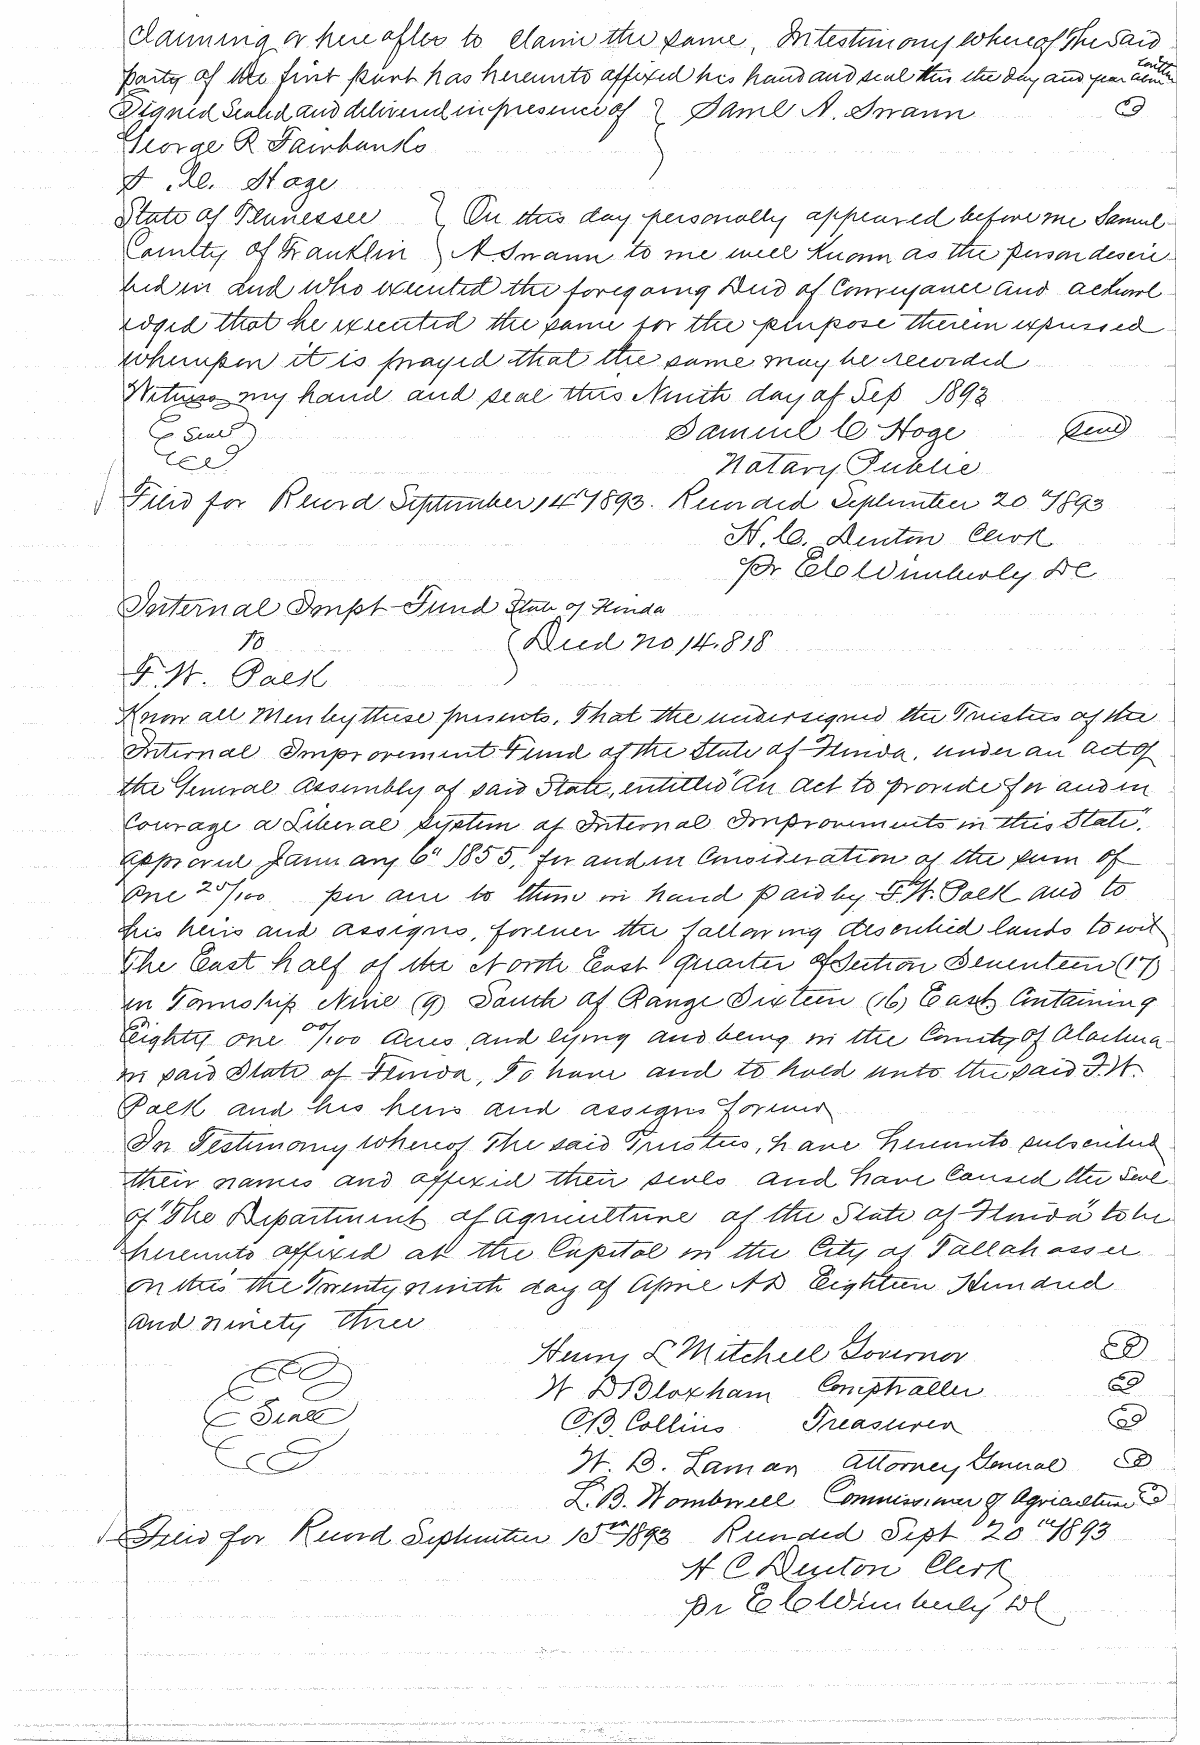 Claiming or here after to claim the same, In testimony whereof The Said
party of the first part has hereunto affixed his hand and seal this the day and year above written
Signed Sealed and delivered in presence of } Saml A. Swann
George R Fairbanks
Hoge
State of Tennessee } On this day personally appeared before me Samuel
County of Franklin } A. Swann to me well known as the person descri
bed in and who executed the foregoing Deed of Conveyance and acknowl
edged that he executed the same for the purpose therein expressed
whereupon it is prayed that the same may be recorded
Witness my hand and seal this Ninth day of Sep 1893
Seal Samuel C Hoge Seal
Notary Public
Filed for Record September 14th 1893. Recorded September 20th 1893
H. C. Denton Clerk
Pr E C Wimberly DC
Internal Impt Fund State of Florida
To } Deed no 14.818
F. W. Polk
Know all Men by these presents, That the undersigned the Trustees of the
Internal Improvement Fund of the State of Florida, under an act of
the General Assembly of said State, entitled "An Act to provide for and en
Courage a Liberal System of Internal Improvements in this State",
approved January 6th 1855, for and in Consideration of the sum of
One 25/100 per acre to them in hand paid by F. W. Polk and to
his heirs and assigns, forever the following described lands to wit
The East half of the North East quarter of Section Seventeen (17)
in Township Nine (9) South of Range Sixteen (16) East, Containing
Eighty one 00/100 Acres and lying and being in the County of Alachua
in said State of Florida, To have and to hold unto the said F. W.
Polk and his heirs and assigns forever
In Testimony whereof The said Trustees, have hereunto subscribed
their names and affixed their seals and have Caused the Seal
of "The Department of Agriculture of the State of Florida" to be
hereunto affixed at the Capitol in the City of Tallahassee
on this the Twenty ninth day of April AD Eighteen Hundred
and ninety three
Henry L Mitchell Governor
W D Bloxham Comptroller
Seal C.B. Collins Treasurer
W. B. Lamar Attorney General
L. B. Wombwell Commissioner of Agriculture
Filed for Record September 15th 1893 Recorded Sept 20th 1893
H C Denton Clerk
Pr E C Wimberly DC